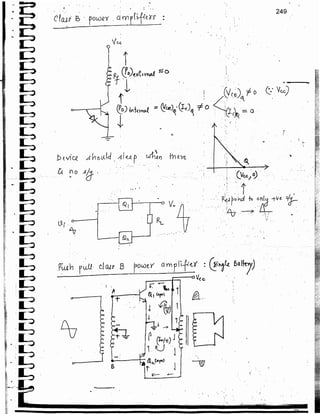 249
Class B power amplifiers :
Vcc
(P_D)external = 0
Rc
(P_D) internal = (Vce)Q (Ic)Q ≠ 0
(Vce)Q ≠ 0 (∵ Vcc)
(Ic)Q = 0
Q
(Vcc, 0)
Device should sleep when there
is no s/g
Respond to only +ve
Q1
Vo
Vi
RL
Q2
Push pull class B power amplifier : (Single Battery)
Vcc
A
Q1 (npn)
B
Q2 (npn)